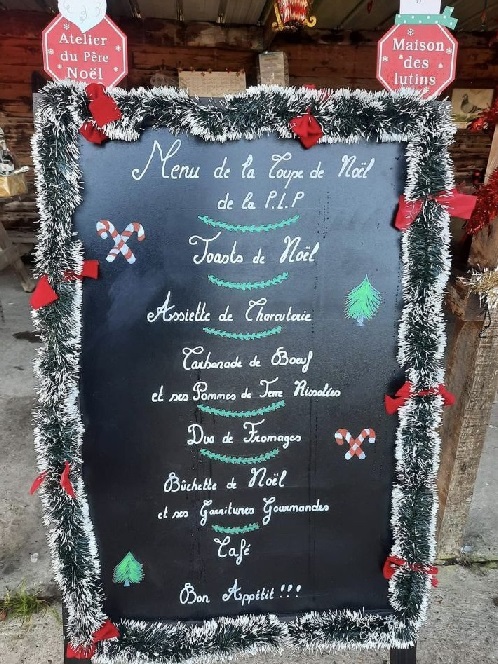 Atelier
du Père
Noël
Maison
des
lutins
Menu de la Coupe de Noël
de la P.L.P
Toasts de Noël
Assiette de Charcuterie
Carbonade de Boeuf
et ses Pommes de Terre Rissolées
Duo de Fromages
Bûchette de Noël
et ses Garnitures Gourmandes
Café
Bon Appétit !!!